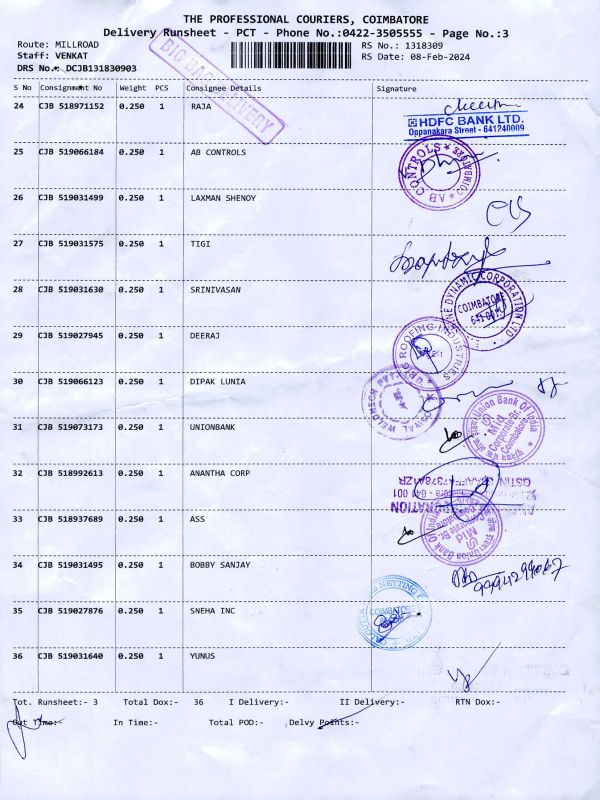 THE PROFESSIONAL COURIERS, COIMBATORE
Delivery Runsheet - PCT - Phone No.:0422-3505555 - Page No.:3
Route: MILLROAD
RS No.: 1318309
Staff: VENKAT
RS Date: 08-Feb-2024
DRS No.: DCJB131830903
BIG BAG DELIVERY
S No Consignment No Weight PCS Consignee Details Signature
24 CJB 518971152 0.250 1 RAJA
HDFC BANK LTD.
Oppanakara Street - 641240009
25 CJB 519066184 0.250 1 AB CONTROLS
AB CONTROLS
26 CJB 519031499 0.250 1 LAXMAN SHENOY
27 CJB 519031575 0.250 1 TIGI
28 CJB 519031630 0.250 1 SRINIVASAN
DYNAMIC CORPORATION
COIMBATORE
29 CJB 519027945 0.250 1 DEERAJ
ROOFING INDUSTRIES
30 CJB 519066123 0.250 1 DIPAK LUNIA
OSWAL WELDMESH
31 CJB 519073173 0.250 1 UNIONBANK
Union Bank Of India
Mid
Corporate Br.
Coimbatore
32 CJB 518992613 0.250 1 ANANTHA CORP
33 CJB 518937689 0.250 1 ASS
Union Bank Of India
Mid
Corporate Br.
34 CJB 519031495 0.250 1 BOBBY SANJAY
35 CJB 519027876 0.250 1 SNEHA INC
NETTING
COIMBATORE
36 CJB 519031640 0.250 1 YUNUS
Tot. Runsheet:- 3 Total Dox:- 36 I Delivery:- II Delivery:- RTN Dox:-
Out Time:- In Time:- Total POD:- Delvy Points:-